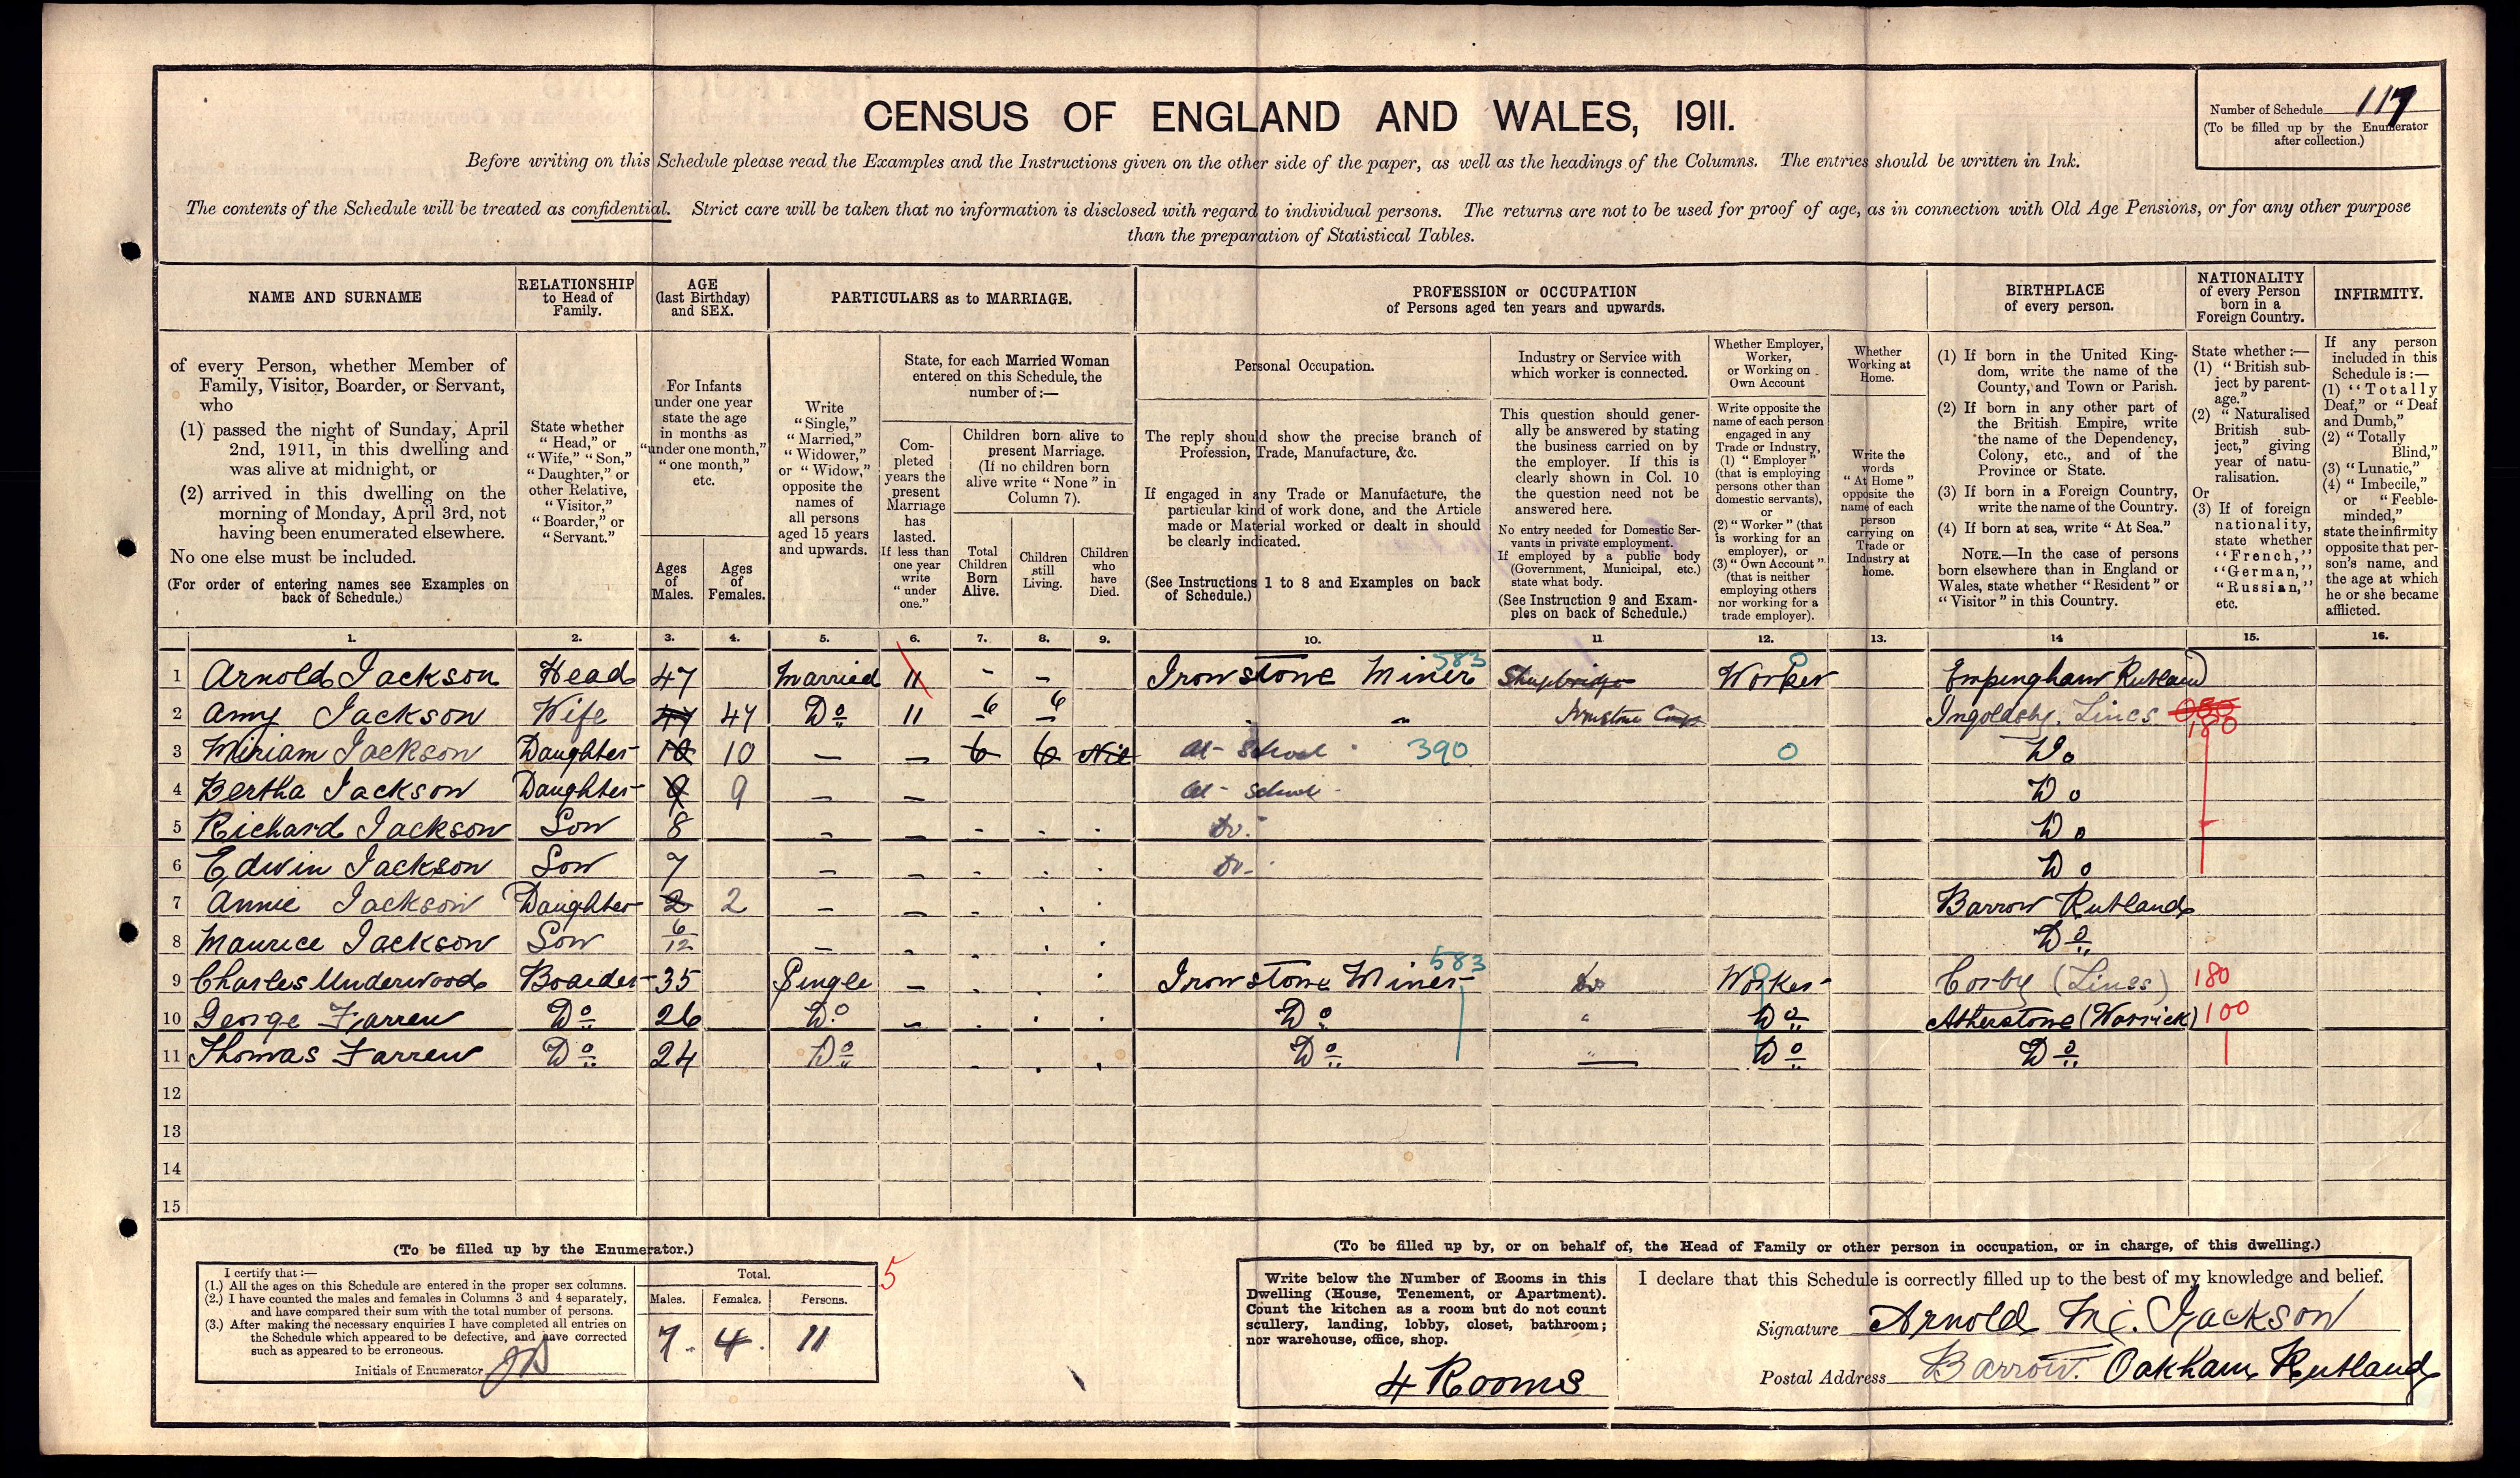 CENSUS OF ENGLAND AND WALES, 1911.
Number of Schedule 117
(To be filled up by the Enumerator
after collection.)
Before writing on this Schedule please read the Examples and the Instructions given on the other side of the paper, as well as the headings of the Columns. The entries should be written in Ink.
The contents of the Schedule will be treated as confidential. Strict care will be taken that no information is disclosed with regard to individual persons. The returns are not to be used for proof of age, as in connection with Old Age Pensions, or for any other purpose
than the preparation of Statistical Tables.
NAME AND SURNAME
of every Person, whether Member of
Family, Visitor, Boarder, or Servant,
who
(1) passed the night of Sunday, April
2nd, 1911, in this dwelling and
was alive at midnight, or
(2) arrived in this dwelling on the
morning of Monday, April 3rd, not
having been enumerated elsewhere.
No one else must be included.
(For order of entering names see Examples on
back of Schedule.)
RELATIONSHIP
to Head of
Family.
State whether
"Head," or
"Wife," "Son,"
"Daughter," or
other Relative,
"Visitor,"
"Boarder," or
"Servant."
AGE
(last Birthday)
and SEX.
For Infants
under one year
state the age
in months as
"under one month,"
"one month,"
etc.
Ages
of
Males.
Ages
of
Females.
PARTICULARS as to MARRIAGE.
Write
"Single,"
"Married,"
"Widower,"
or "Widow,"
opposite the
names of
all persons
aged 15 years
and upwards.
State, for each Married Woman
entered on this Schedule, the
number of:—
Com-
pleted
years the
present
Marriage
has
lasted.
If less than
one year
write
"under
one."
Children born alive to
present Marriage.
(If no children born
alive write "None" in
Column 7).
Total
Children
Born
Alive.
Children
still
Living.
Children
who
have
Died.
PROFESSION or OCCUPATION
of Persons aged ten years and upwards.
Personal Occupation.
The reply should show the precise branch of
Profession, Trade, Manufacture, &c.
If engaged in any Trade or Manufacture, the
particular kind of work done, and the Article
made or Material worked or dealt in should
be clearly indicated.
(See Instructions 1 to 8 and Examples on back
of Schedule.)
Industry or Service with
which worker is connected.
This question should gener-
ally be answered by stating
the business carried on by
the employer. If this is
clearly shown in Col. 10
the question need not be
answered here.
No entry needed for Domestic Ser-
vants in private employment.
If employed by a public body
(Government, Municipal, etc.)
state what body.
(See Instruction 9 and Exam-
ples on back of Schedule.)
Whether Employer,
Worker,
or Working on
Own Account
Write opposite the
name of each person
engaged in any
Trade or Industry,
(1) "Employer"
(that is employing
persons other than
domestic servants),
or
(2) "Worker" (that
is working for an
employer), or
(3) "Own Account"
(that is neither
employing others
nor working for a
trade employer).
Whether
Working at
Home.
Write the
words
"At Home"
opposite the
name of each
person
carrying on
Trade or
Industry at
home.
BIRTHPLACE
of every person.
(1) If born in the United King-
dom, write the name of the
County, and Town or Parish.
(2) If born in any other part of
the British Empire, write
the name of the Dependency,
Colony, etc., and of the
Province or State.
(3) If born in a Foreign Country,
write the name of the Country.
(4) If born at sea, write "At Sea."
NOTE.—In the case of persons
born elsewhere than in England or
Wales, state whether "Resident" or
"Visitor" in this Country.
NATIONALITY
of every Person
born in a
Foreign Country.
State whether:—
(1) "British sub-
ject by parent-
age."
(2) "Naturalised
British sub-
ject," giving
year of natu-
ralisation.
Or
(3) If of foreign
nationality,
state whether
"French,"
"German,"
"Russian,"
etc.
INFIRMITY.
If any person
included in this
Schedule is:—
(1) "Totally
Deaf," or "Deaf
and Dumb,"
(2) "Totally
Blind,"
(3) "Lunatic,"
(4) "Imbecile,"
or "Feeble-
minded,"
state the infirmity
opposite that per-
son's name, and
the age at which
he or she became
afflicted.
1. 2. 3. 4. 5. 6. 7. 8. 9. 10. 11 12. 13. 14 15. 16.
1 Arnold Jackson Head 47 Married 11 - - Ironstone Miner 583 Worker Empingham Rutland
2 Amy Jackson Wife 47 47 Do 11 6 6 Ironstone Ingoldsby. Lincs 180
3 Miriam Jackson Daughter 10 10 — — 6 6 Nil At School 390 0 Do
4 Bertha Jackson Daughter 9 9 — — At School Do
5 Richard Jackson Son 8 - - - - - Do. Do
6 Edwin Jackson Son 7 - - - - - Do. Do
7 Annie Jackson Daughter 2 2 - - - - - Barrow Rutland
8 Maurice Jackson Son 6/12 - - - - - Do
9 Charles Underwood Boarder 35 Single - - - - Ironstone Miner 583 Do Worker Corby (Lincs) 180
10 George Farren Do 26 Do - - - - Do " Do Atherstone (Warrick) 100
11 Thomas Farren Do 24 Do - - - Do " Do Do
12
13
14
15
(To be filled up by the Enumerator.)
I certify that:—
(1.) All the ages on this Schedule are entered in the proper sex columns.
(2.) I have counted the males and females in Columns 3 and 4 separately,
and have compared their sum with the total number of persons.
(3.) After making the necessary enquiries I have completed all entries on
the Schedule which appeared to be defective, and have corrected
such as appeared to be erroneous.
Initials of Enumerator
Total.
Males. Females. Persons.
7. 4. 11
5
(To be filled up by, or on behalf of, the Head of Family or other person in occupation, or in charge, of this dwelling.)
Write below the Number of Rooms in this
Dwelling (House, Tenement, or Apartment).
Count the kitchen as a room but do not count
scullery, landing, lobby, closet, bathroom;
nor warehouse, office, shop.
4 Rooms
I declare that this Schedule is correctly filled up to the best of my knowledge and belief.
Signature Arnold Jackson
Postal Address Barrow. Oakham Rutland